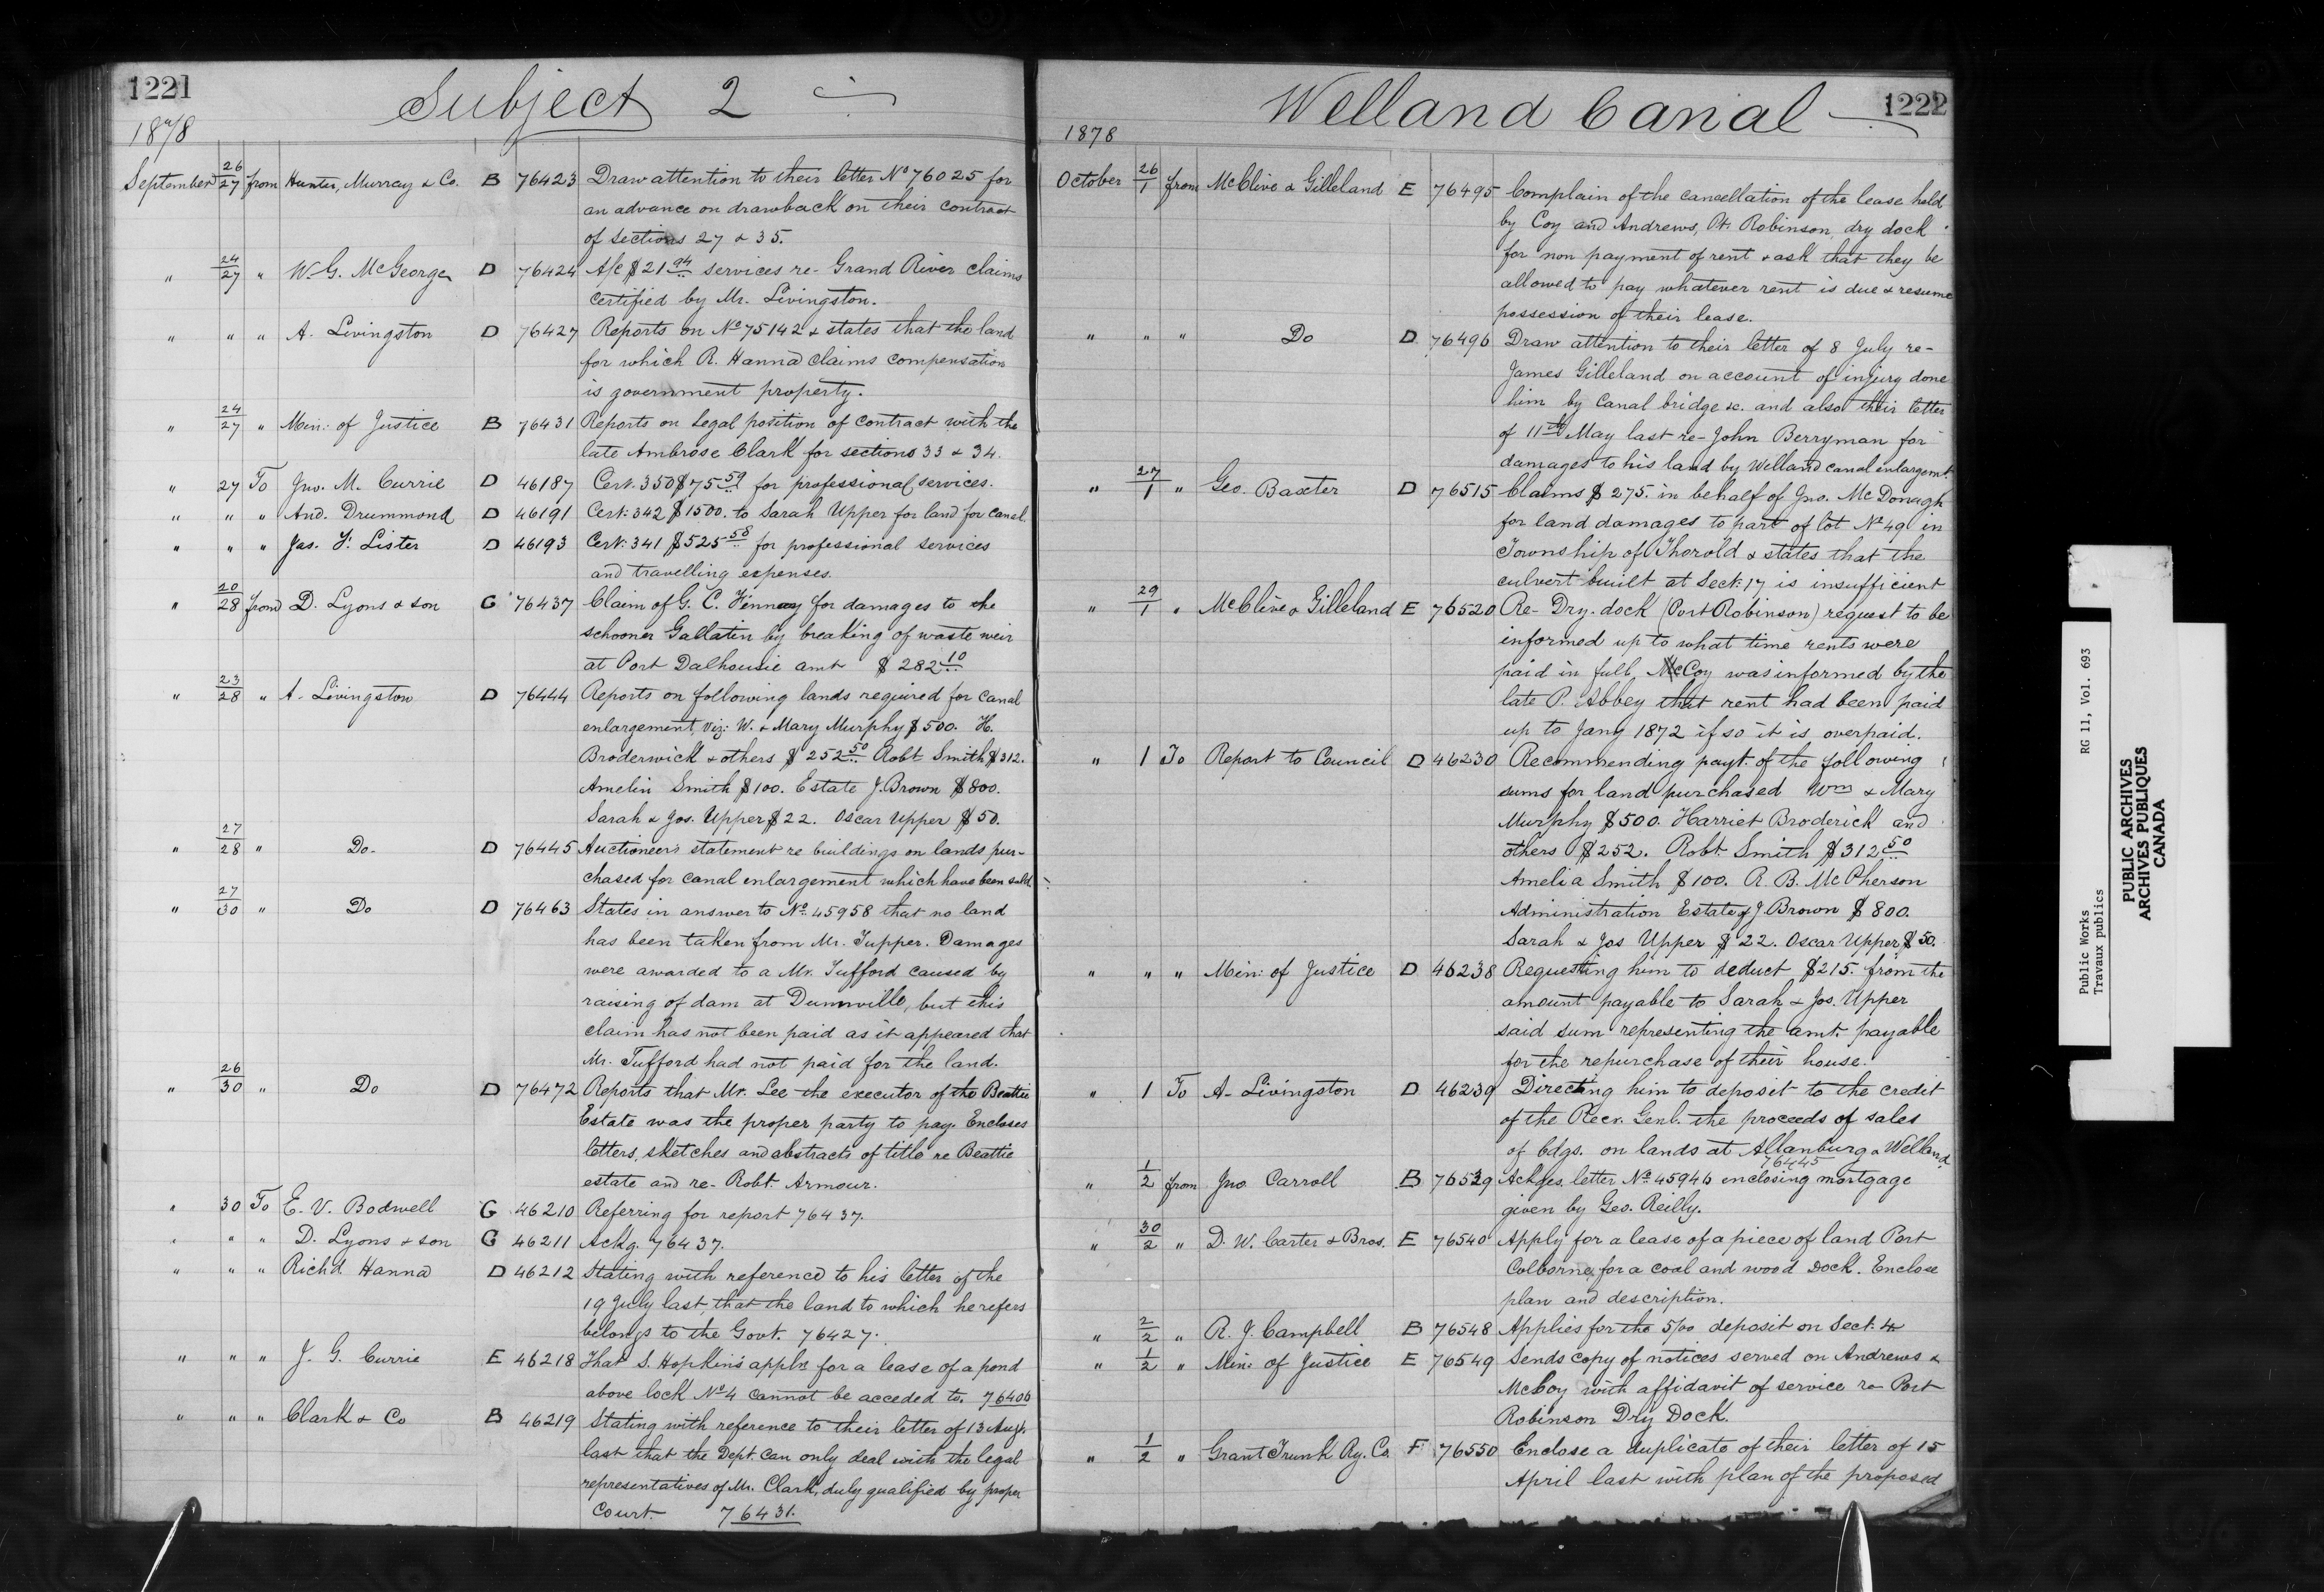 1221
Subject 2
1878
September 26/27 from Hunter, Murray & Co. B 76423 Draw attention to their letter No 76025 for
an advance on drawback on their contract
of sections 27 & 35.
" 24/27 " W. G. McGeorge D 76424 A/c $21 94 services re- Grand River claims
certified by Mr. Livingston.
" " " A. Livingston D 76427 Reports on No 75142 & states that the land
for which R. Hanna claims compensation
is government property.
" 24/27 " Min: of Justice B 76431 Reports on legal position of contract with the
late Ambrose Clark for sections 33 & 34.
" 27 To Jno. M. Currie D 46187 Cert. 350 $75 59 for professional services.
" " " And. Drummond D 46191 Cert: 342 $1500. to Sarah Upper for land for canal.
" " " Jas. F. Lister D 46193 Cert: 341 $525 58 for professional services
and travelling expenses.
" 20/28 from D. Lyons & son G 76437 Claim of G. C. Finney for damages to the
schooner Gallatin by breaking of waste weir
at Port Dalhousie amt $282 10
" 23/28 " A. Livingston D 76444 Reports on following lands required for canal
enlargement, viz: W. & Mary Murphy $500. H.
Broderwick & others $252 50 Robt Smith $312.
Amelia Smith $100. Estate J. Brown $800.
Sarah & Jos. Upper $22. Oscar Upper $50.
" 27/28 " Do. D 76445 Auctioneer's statement re buildings on lands pur-
chased for canal enlargement which have been sold.
" 27/30 " Do D 76463 States in answer to No. 45958 that no land
has been taken from Mr. Tupper. Damages
were awarded to a Mr. Tufford caused by
raising of dam at Dunnville, but this
claim has not been paid as it appeared that
Mr. Tufford had not paid for the land.
" 26/30 " Do D 76472 Reports that Mr. Lee the executor of the Beattie
Estate was the proper party to pay. Encloses
letters, sketches and abstracts of title re Beattie
estate and re- Robt. Armour.
" 30 To E. V. Bodwell G 46210 Referring for report 76437.
" " " D. Lyons & son G 46211 Ackg. 76437.
" " " Richd Hanna D 46212 Stating with reference to his letter of the
19 July last, that the land to which he refers
belongs to the Govt. 76427.
" " " J. G. Currie E 46218 That S. Hopkin's appln for a lease of a pond
above lock No 4 cannot be acceded to. 76406
" " " Clark & Co B 46219 Stating with reference to their letter of 13 Aug.
last that the Dept. can only deal with the legal
representatives of Mr. Clark, duly qualified by proper
Court. 76431.
Welland Canal
1222
1878
October 26/1 from McClive & Gilleland E 76495 Complain of the cancellation of the lease held
by Coy and Andrews, Pt. Robinson, dry dock
for non payment of rent & ask that they be
allowed to pay whatever rent is due & resume
possession of their lease.
" " " Do D 76496 Draw attention to their letter of 8 July re-
James Gilleland on account of injury done
him by Canal bridge &c. and also their letter
of 11th May last re- John Berryman for
damages to his land by Welland canal enlargemt.
" 27/1 " Geo. Baxter D 76515 Claims $275. in behalf of Jno. McDonagh
for land damages to part of lot No 49 in
Township of Thorold & states that the
culvert built at Sect: 17 is insufficient
" 29/1 " McClive & Gilleland E 76520 Re- Dry-dock (Port Robinson) request to be
informed up to what time rents were
paid in full, McCoy was informed by the
late P. Abbey that rent had been paid
up to Jany 1872 if so it is overpaid.
" 1 To Report to Council D 46230 Recommending payt. of the following
sums for land purchased Wm & Mary
Murphy $500. Harriet Broderick and
others $252. Robt. Smith $312 50
Amelia Smith $100. R. B. McPherson
Administration Estate of J. Brown $800.
Sarah & Jos Upper $22. Oscar Upper $50.
" " " Min: of Justice D 46238 Requesting him to deduct $215. from the
amount payable to Sarah & Jos. Upper
said sum representing the amt. payable
for the repurchase of their house.
" 1 To A. Livingston D 46239 Directing him to deposit to the credit
of the Recr. Genl. the proceeds of sales
of bdgs. on lands at Allanburg & Welland
76445
" 1/2 from Jno. Carroll B 76529 Ackges. letter No 45946 enclosing mortgage
given by Geo. Reilly.
" 30/2 " D. W. Carter & Bros. E 76540 Apply for a lease of a piece of land Port
Colborne, for a coal and wood Dock. Enclose
plan and description.
" 2/2 " R. J. Campbell B 76548 Applies for the 5/00 deposit on Sect. 4
" 1/2 " Min: of Justice E 76549 Sends copy of notices served on Andrews &
McCoy with affidavit of service re Port
Robinson Dry Dock.
" 1/2 " Grant Trunk Ry. Co. F 76550 Enclose a duplicate of their letter of 15
April last with plan of the proposed
Public Works RG 11, Vol. 693
Travaux publics
PUBLIC ARCHIVES
ARCHIVES PUBLIQUES
CANADA